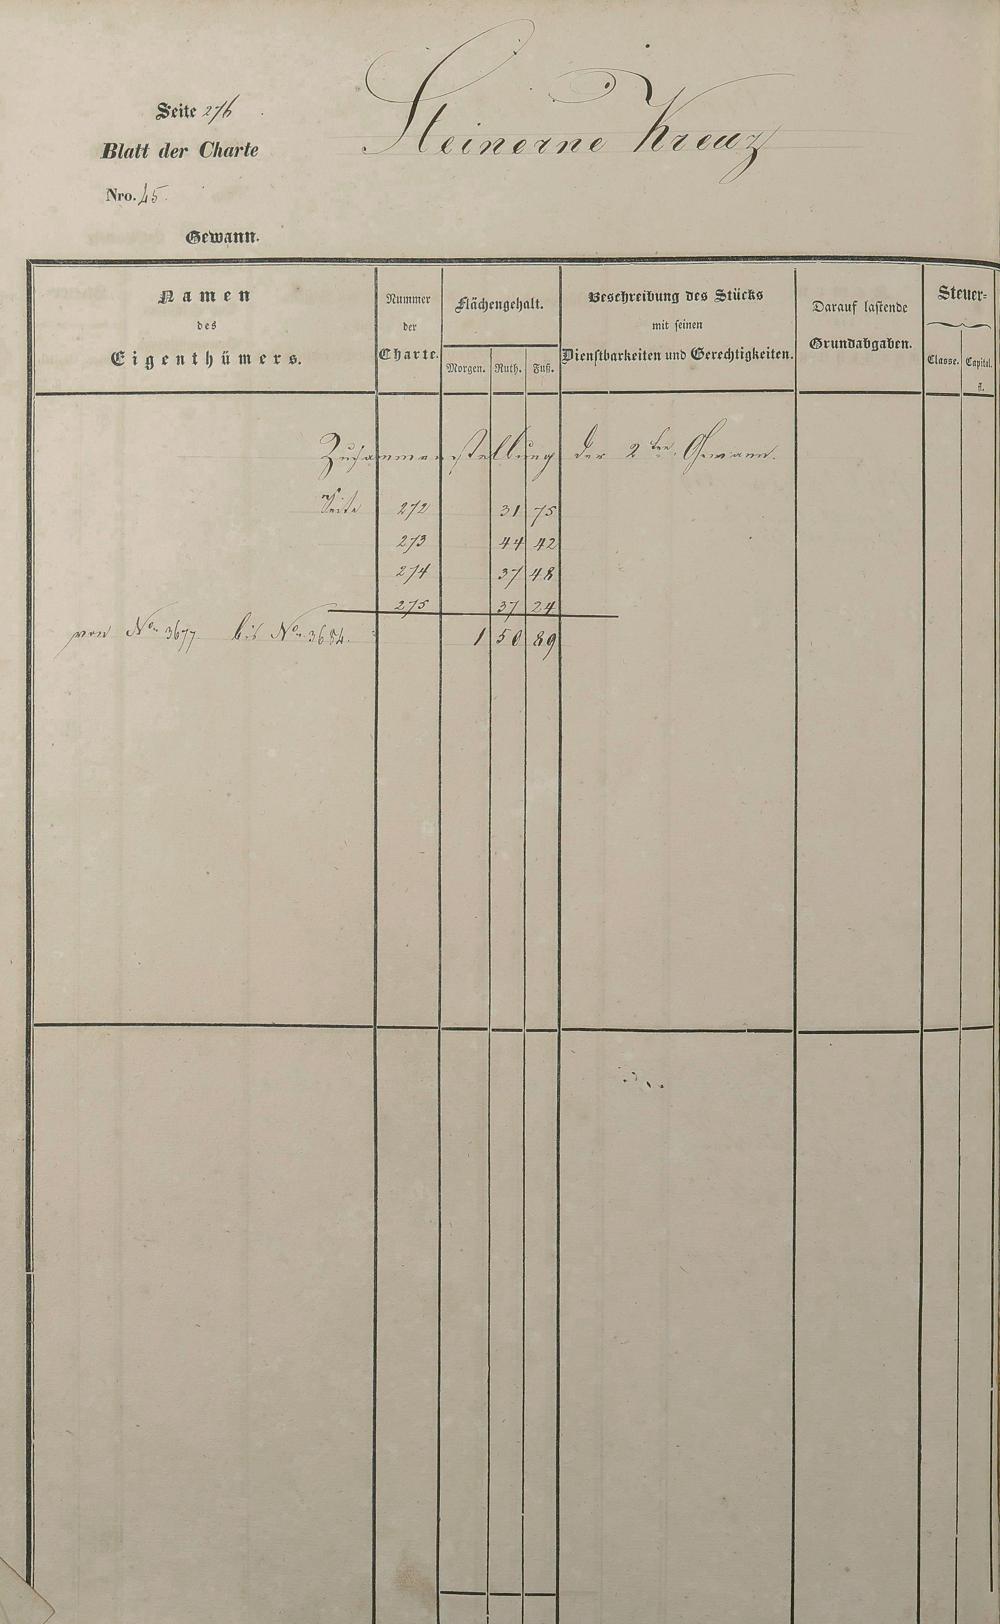 Steinerne Kreuz
Seite 276
Blatt der Charte
Nro. 45.
Gewann.
Namen
des
Eigenthümers.
Nummer
der
Charte.
Flächengehalt.
Morgen. Ruth. Fuß.
Beschreibung des Stücks
mit seinen
Dienstbarkeiten und Gerechtigkeiten.
Darauf lastende
Grundabgaben.
Steuer=
Classe. Capital.
fl.
Zusammenstellung der 2ten Gewann.
Seite 272 31 75
273 44 42
274 37 48
275 37 24
von No. 3677. bis No. 3684. 1 50 89